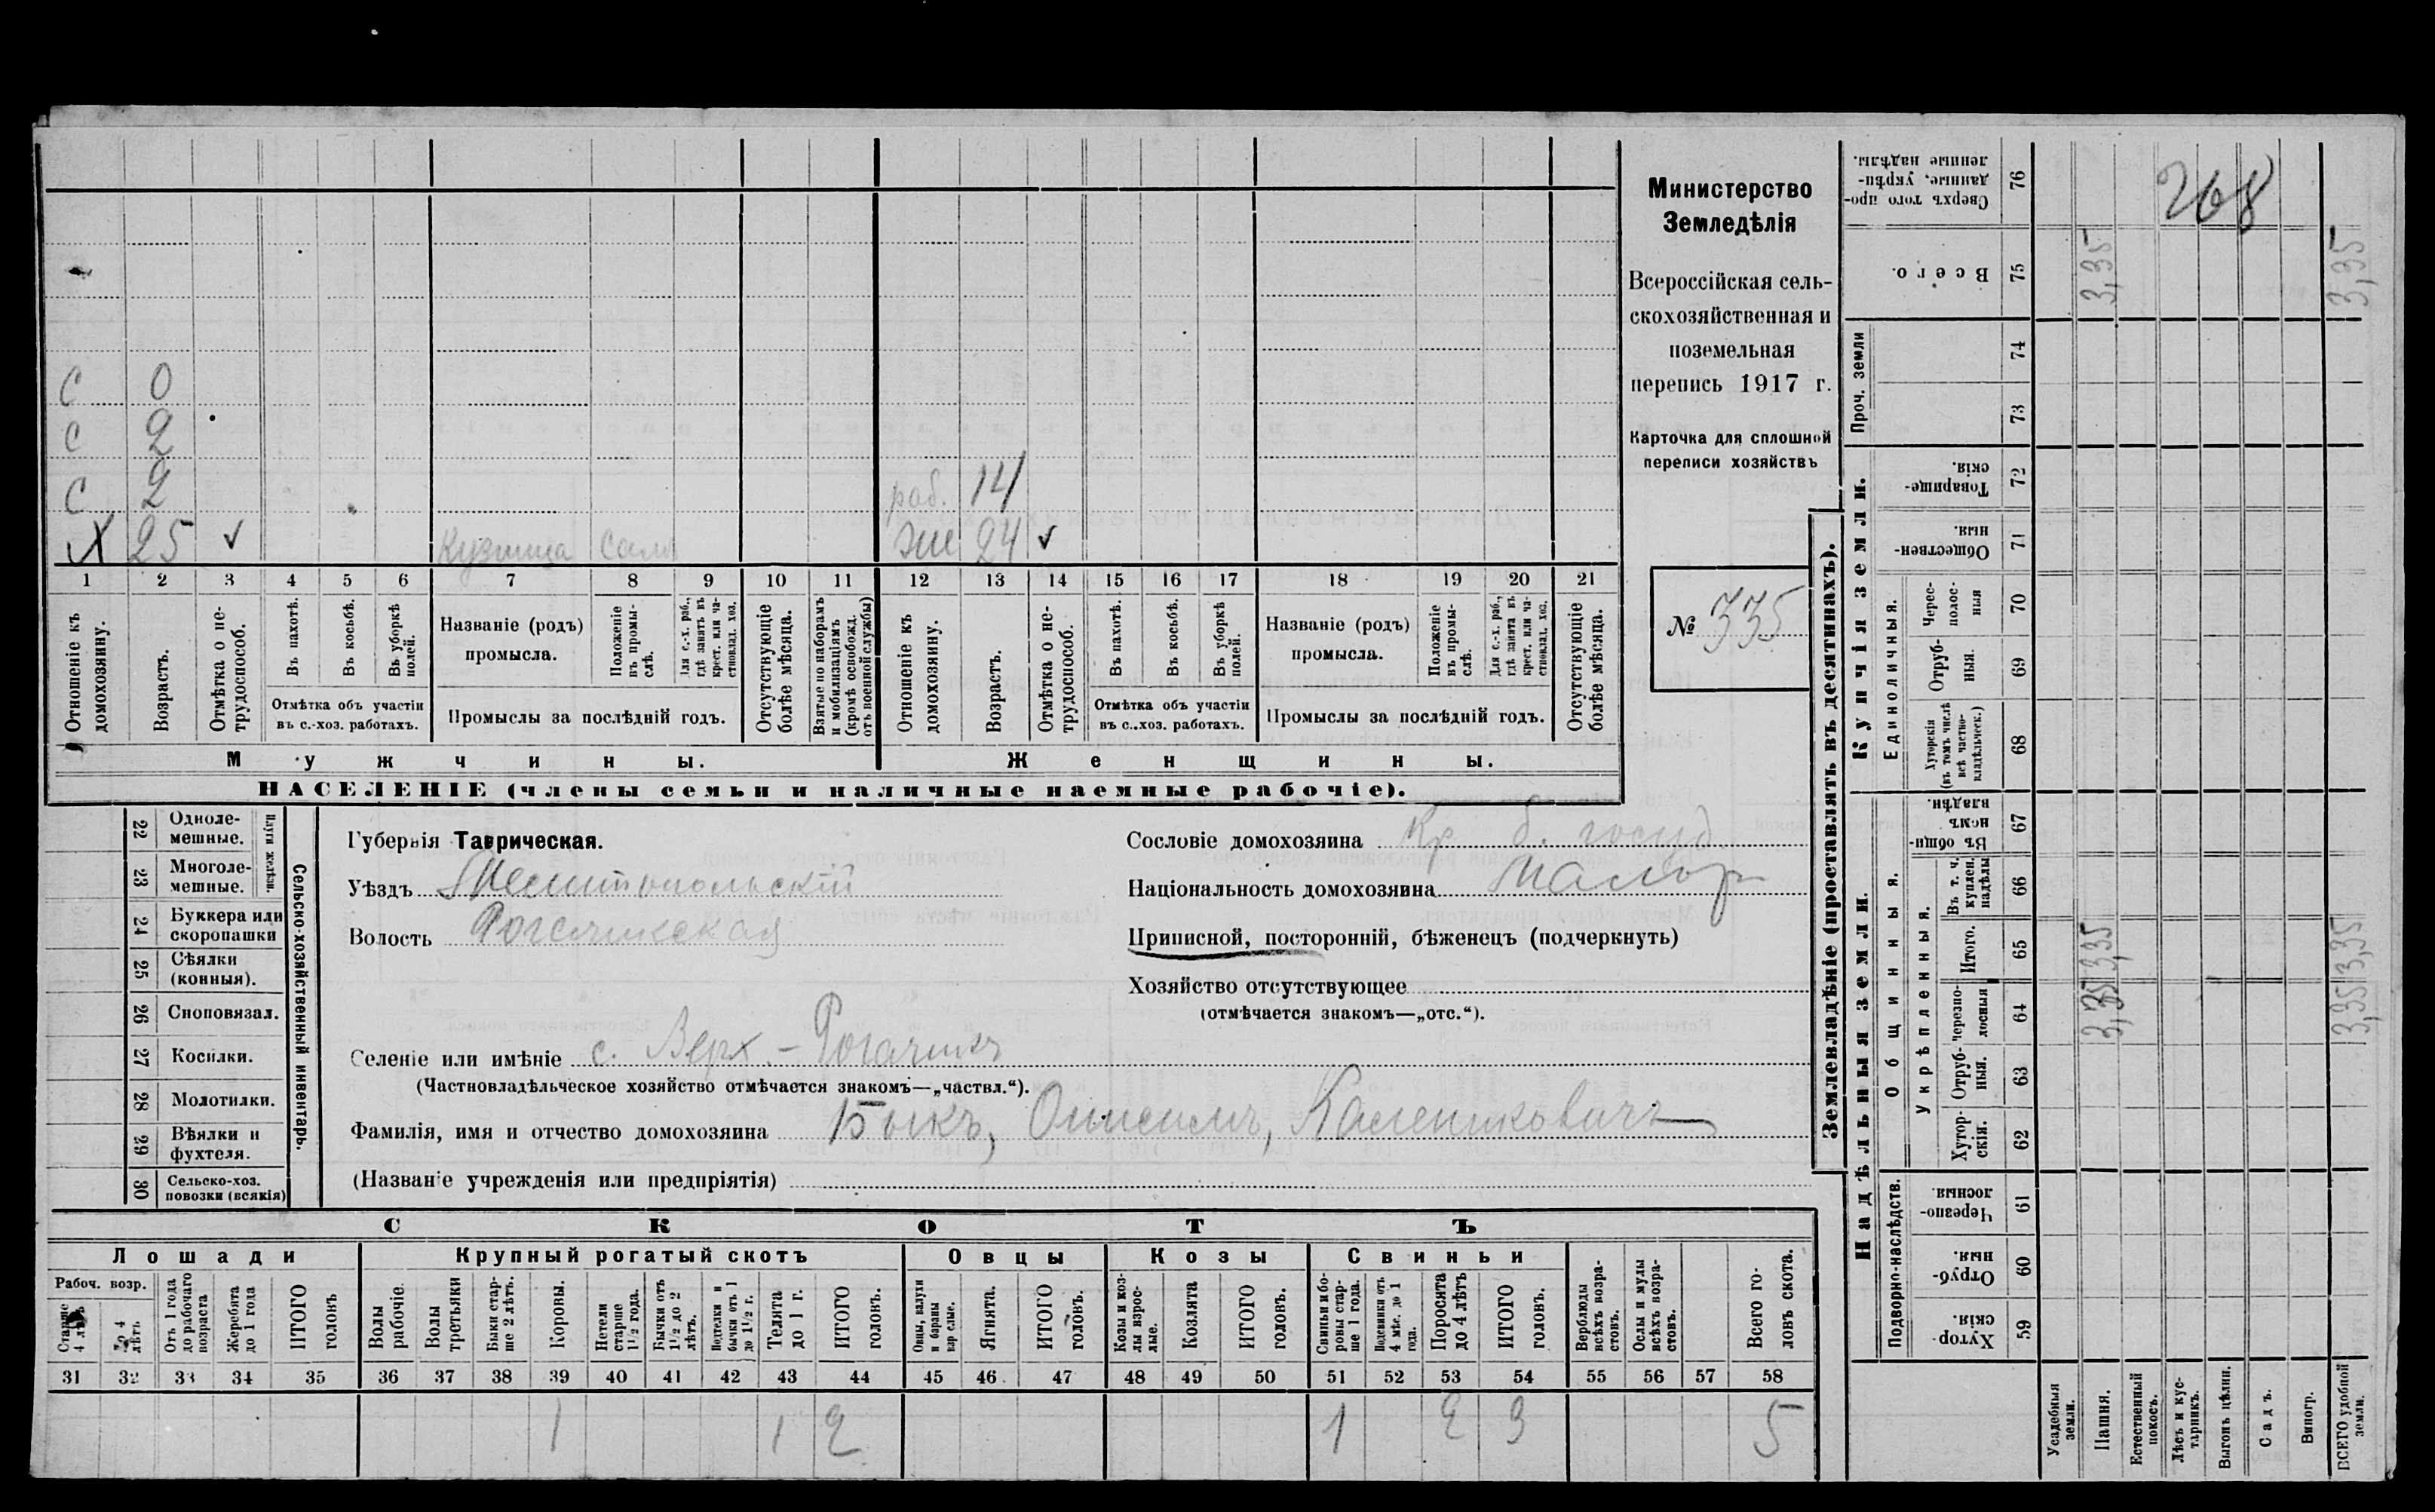 Министерство
Земледѣлія
Всероссійская сель-
скохозяйственная и
поземельная
перепись 1917 г.
Карточка для сплошной
переписи хозяйствъ
№ 335
С 0
С 2
С 2
раб. 14
Х 25 ✓ Кузница Сам
же 24 ✓
1 2 3 4 5 6 7 8 9 10 11 12 13 14 15 16 17 18 19 20 21
Отношеніе къ домохозяину.
Возрастъ.
Отмѣтка о не-трудоспособ.
Въ пахотѣ.
Въ косьбѣ.
Въ уборкѣ полей.
Отмѣтка объ участіи
въ с.-хоз. работахъ.
Названіе (родъ)
промысла.
Положеніе въ промы-слѣ.
Для с.-х. раб., гдѣ занятъ въ крест. или ча-стновлад. хоз.
Промыслы за послѣдній годъ.
Отсутствующіе болѣе мѣсяца.
Взятые по наборамъ и мобилизаціямъ (кромѣ освобожд. отъ военной службы)
Отношеніе къ домохозяину.
Возрастъ.
Отмѣтка о не-трудоспособ.
Въ пахотѣ.
Въ косьбѣ.
Въ уборкѣ полей.
Отмѣтка объ участіи
въ с.-хоз. работахъ.
Названіе (родъ)
промысла.
Положеніе въ промы-слѣ.
Для с.-х. раб., гдѣ занята въ крест. или ча-стновлад. хоз.
Промыслы за послѣдній годъ.
Отсутствующіе болѣе мѣсяца.
Мужчины.
Женщины.
НАСЕЛЕНІЕ (члены семьи и наличные наемные рабочіе).
Сельско-хозяйственный инвентарь.
Плуги желѣзн.
22 Одноле-мешные.
23 Многоле-мешные.
24 Буккера или скоропашки
25 Сѣялки (конныя).
26 Сноповязал.
27 Косилки.
28 Молотилки.
29 Вѣялки и фухтеля.
30 Сельско-хоз. повозки (всякія)
Губернія Таврическая.
Уѣздъ Мелитопольскій
Волость Рогачикская
Сословіе домохозяина Кр б. госуд
Національность домохозяина Малор
Приписной, посторонній, бѣженецъ (подчеркнуть)
Хозяйство отсутствующее
(отмѣчается знакомъ—„отс.“).
Селеніе или имѣніе с. Верх.-Рогачикъ
(Частновладѣльческое хозяйство отмѣчается знакомъ—„частвл.“).
Фамилія, имя и отчество домохозяина Быкъ, Онисимъ, Калениковичъ
(Названіе учрежденія или предпріятія)
СКОТЪ
Лошади
Крупный рогатый скотъ
Овцы
Козы
Свиньи
Рабоч. возр.
Старше 4 лѣтъ
До 4 лѣтъ
Отъ 1 года до рабочаго возраста
Жеребята до 1 года
ИТОГО головъ
Волы рабочіе.
Волы третьяки
Быки стар-ше 2 лѣтъ.
Коровы.
Нетели старше 1½ года.
Бычки отъ 1½ до 2 лѣтъ.
Подтелки и бычки отъ 1 до 1½ г.
Телята до 1 г.
ИТОГО головъ.
Овцы, валухи и бараны взрослые.
Ягнята.
ИТОГО головъ.
Козы и коз-лы взрос-лые.
Козлята
ИТОГО головъ.
Свиньи и бо-ровы стар-ше 1 года.
Подсвинки отъ 4 мѣс. до 1 года.
Поросята до 4 лѣтъ
ИТОГО головъ.
Верблюды всѣхъ возра-стовъ.
Ослы и мулы всѣхъ возра-стовъ.
Всего го-ловъ скота.
31 32 33 34 35 36 37 38 39 40 41 42 43 44 45 46 47 48 49 50 51 52 53 54 55 56 57 58
1 1 2 1 2 3 5
Землевладѣніе (проставлять въ десятинахъ).
Купчія земли.
Надѣльныя земли.
Проч. земли
Единоличныя.
Общинныя.
Укрѣпленныя.
Подворно-наслѣдств.
76 Сверхъ того про-данные, укрѣп-ленные надѣлы.
75 Всего.
74
73
72 Товарище-скія.
71 Обществен-ныя.
70 Черес-полос-ныя
69 Отруб-ныя.
68 Хуторскія (въ томъ числѣ всѣ частно-владѣльческ.)
67 Въ общин-номъ владѣн.
66 Въ т. ч. куплен. надѣлы
65 Итого.
64 Черезпо-лосныя
63 Отруб-ныя.
62 Хутор-скія.
61 Черезпо-лосныя.
60 Отруб-ныя.
59 Хутор-скія.
Усадебныя земли.
Пашня.
Естественный покосъ.
Лѣсъ и кус-тарникъ.
Выгонъ цѣлин.
Садъ.
Виногр.
ВСЕГО удобной земли.
268
3,35 3,35
3,35 3,35
3,35 3,35